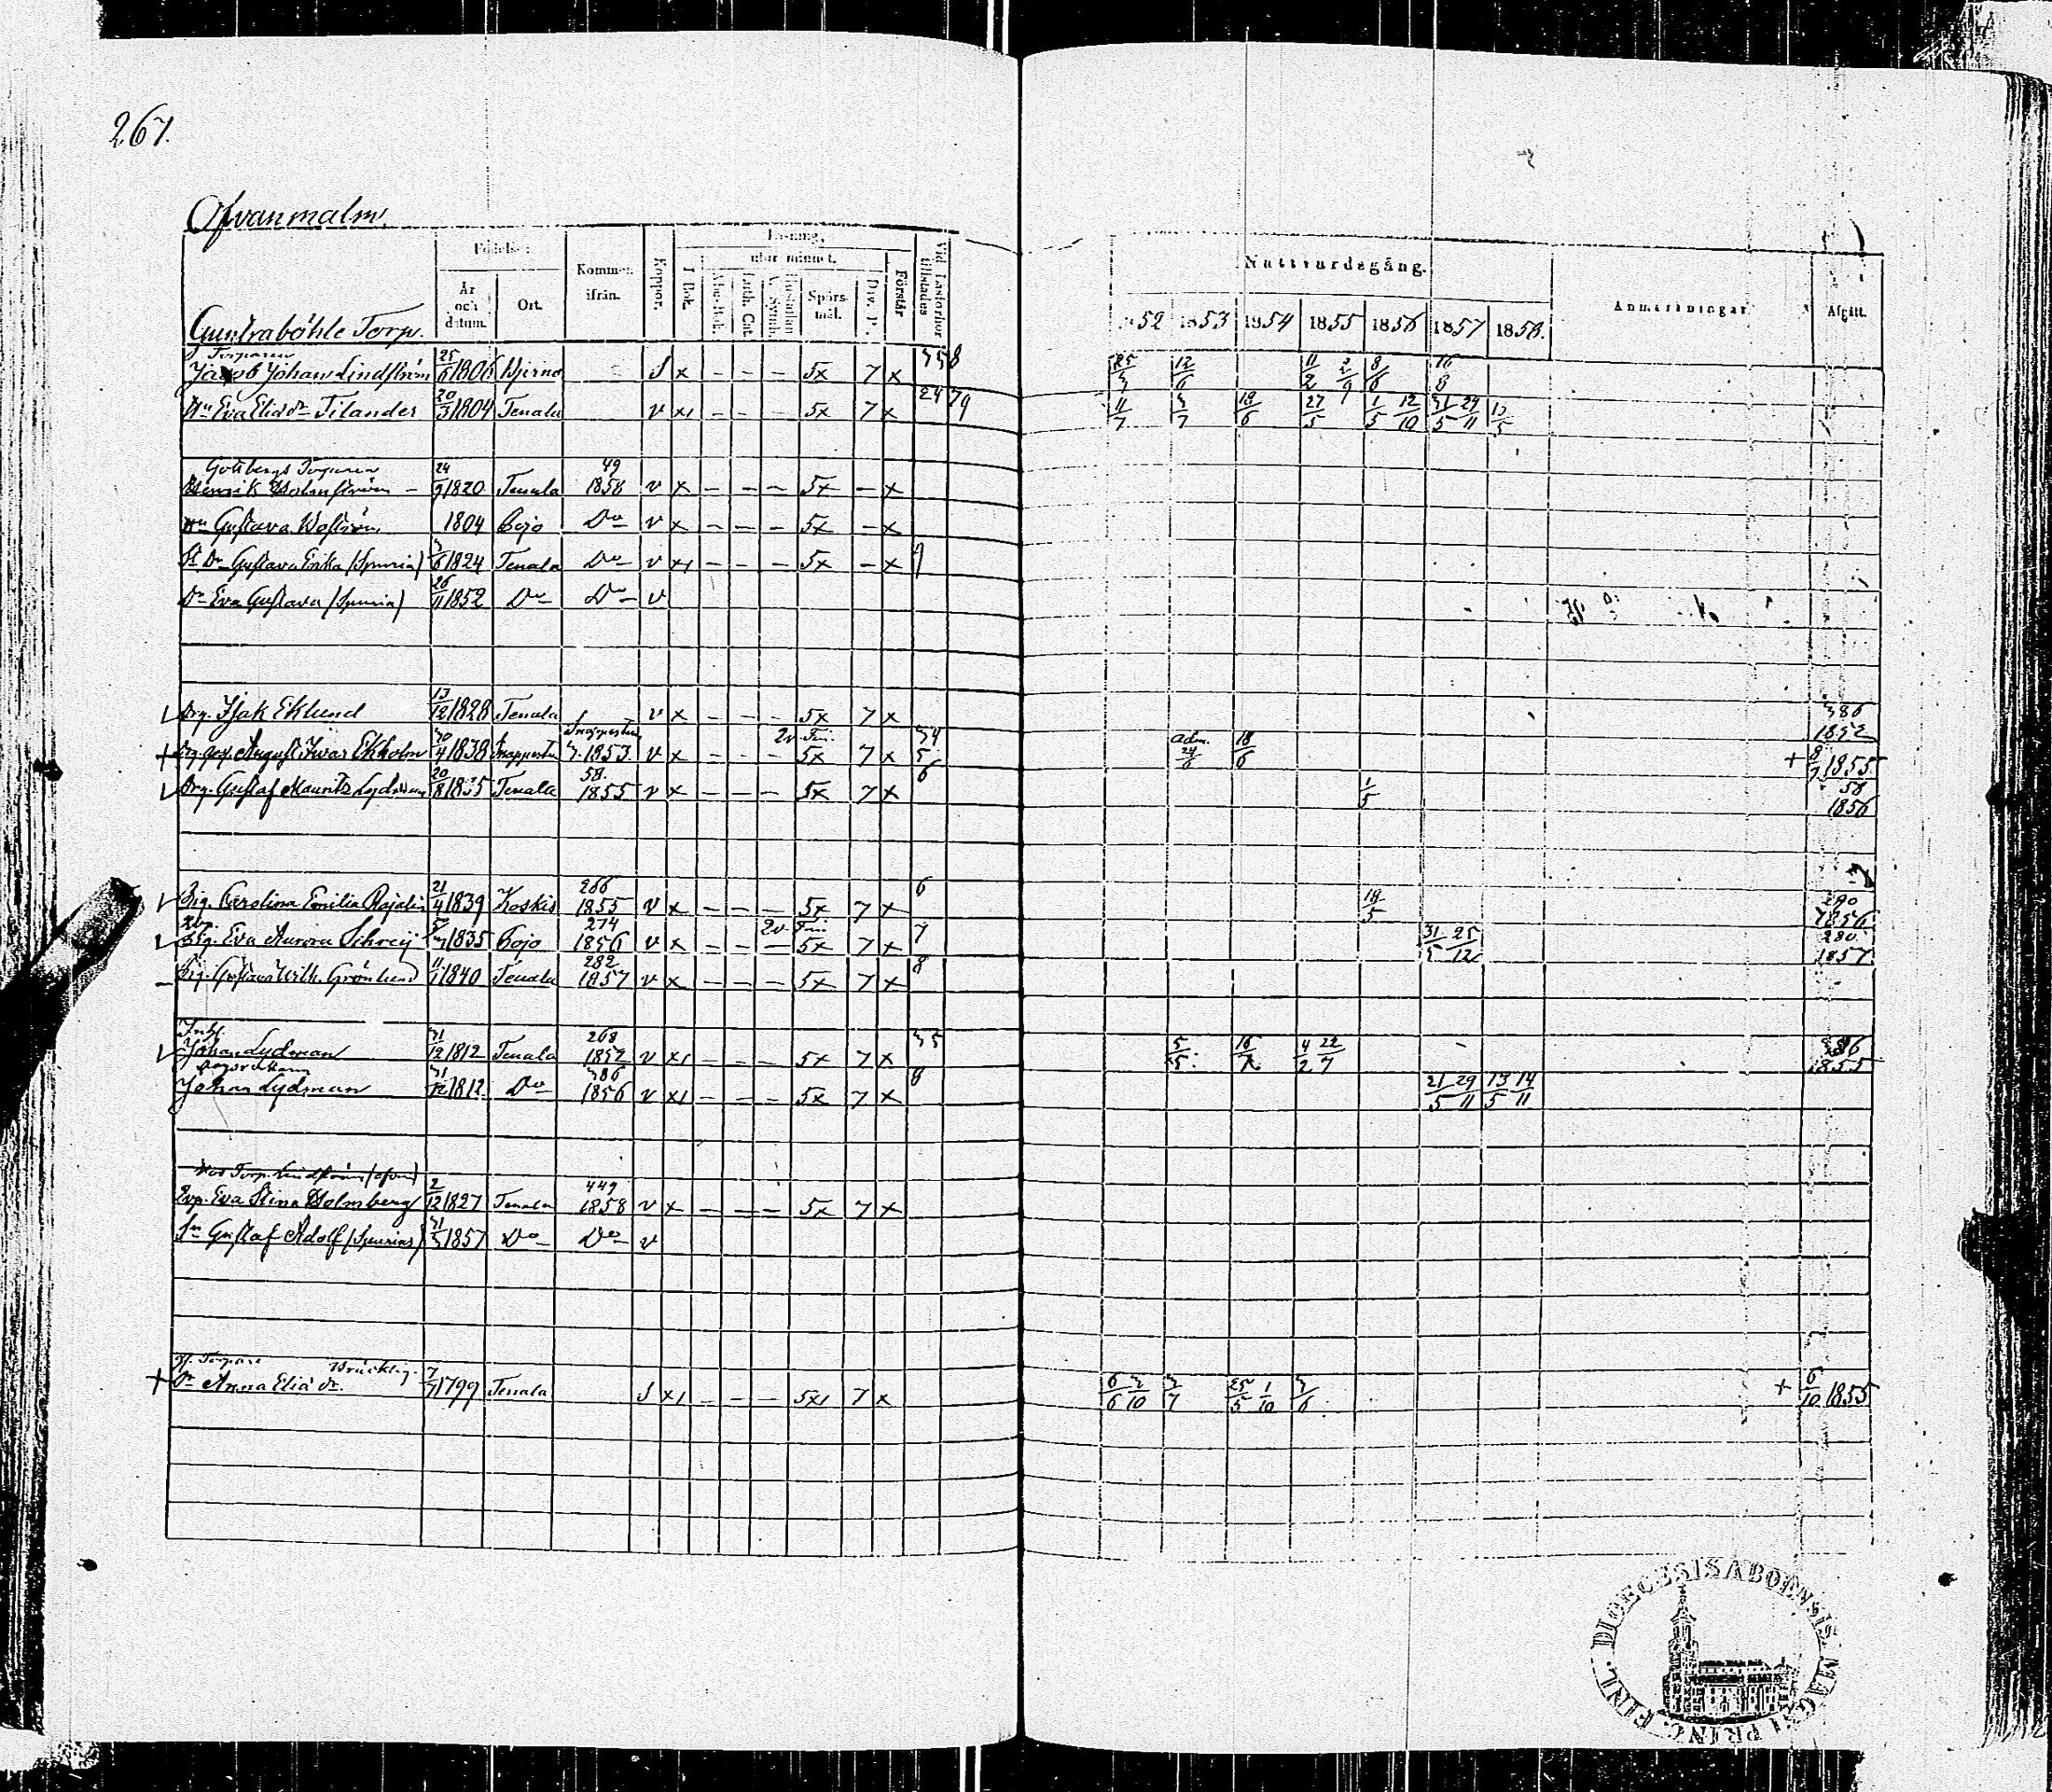 267.
Ofvanmalm.
Födelse-
Kommer ifrån.
Koppor.
Läsning,
utur minnet.
I Bok.
Abc-Bok.
Luth. Cat.
Spörsmål.
Dav. P.
Förstår
Vid Läsförhör tillstädes
År och datum.
Ort.
Nattvardsgång.
1852 1853 1854 1855 1856 1857 1858.
Anmärkningar
Afgått.
Guntraböhle Torp.
Torparen
Jacob Johan Lindström 25/6 1806 Bjerno S x - - - 5x 7 x 358 25/3 12/6 11/2 2/9 8/6 16/8
Hu Eva Eliæ dr Tilander 20/3 1804 Tenala v x1 - - - 5x 7 x 11/7 3/7 18/6 27/5 1/5 12/10 31/5 29/11 13/5
Gottbergs Torparen 49
Henrik Holmström 24/9 1820 Tenala 1858 v x - - - 5x - x
Hu Gustava Wolström 1804 Pojo Do v x - - - 5x - x
St Dr Gustava Erika (Spuria) 3/6 1824 Tenala Do v x1 - - - 5x - x 9
Dr Eva Gustava (Spuria) 26/11 1852 Do Do v
Drg. Isak Eklund 13/12 1828 Tenala v x - - - 5x 7 x 386 1852
Snappertuna 2v. Fin 34
August Ivar Ekholm 30/4 1838 Snappertu 3. 1853 v x - - - 5x 7 x 5 adm. 24/6 18/6 + 8/7 1855
Drg. Gustaf Mauritz Lydman 20/8 1835 Tenala 58. 1855 v x - - - 5x 7 x 6 1/5 58 1856
Pig. Carolina Emilia Rajalin 21/4 1839 Koskis 266 1855 v x - - - 5x 7 x 6 18/5 290 1856
Pig. Eva Aurora Schreij 1835 Pojo 274 1856 v x - - 2v. Fin 5x 7 x 7 31/5 25/12 280 1857
Pig. Gustava Wilh. Grönlund 11/1 1840 Tenala 282 1857 v x - - - 5x 7 x 8
Inh.
Johan Lydman 31/12 1812 Tenala 268 1852 v x1 - - - 5x 7 x 35 5/5 4/2 22/7 386 1855
Johan Lydman 31/12 1812 Do 386 1856 v x1 - - - 5x 7 x 8 21/5 29/11 13/5 14/11
Hos Torp. Lindström (ofvan)
Eva Stina Holmberg 2/12 1827 Tenala 449 1858 v x - - - 5x 7 x
Sn Gustaf Adolf (Spurius) 31/3 1857 Do Do v
Torpare Bräcklig
Anna Eliæ dr. 7/7 1799 Tenala S x1 - - - 5x1 7 x 6/6 2/10 3/7 25/5 1/10 3/6 + 6/10 1855
DIOECESIS ABOENSIS MAGNI PRINC. FINL.